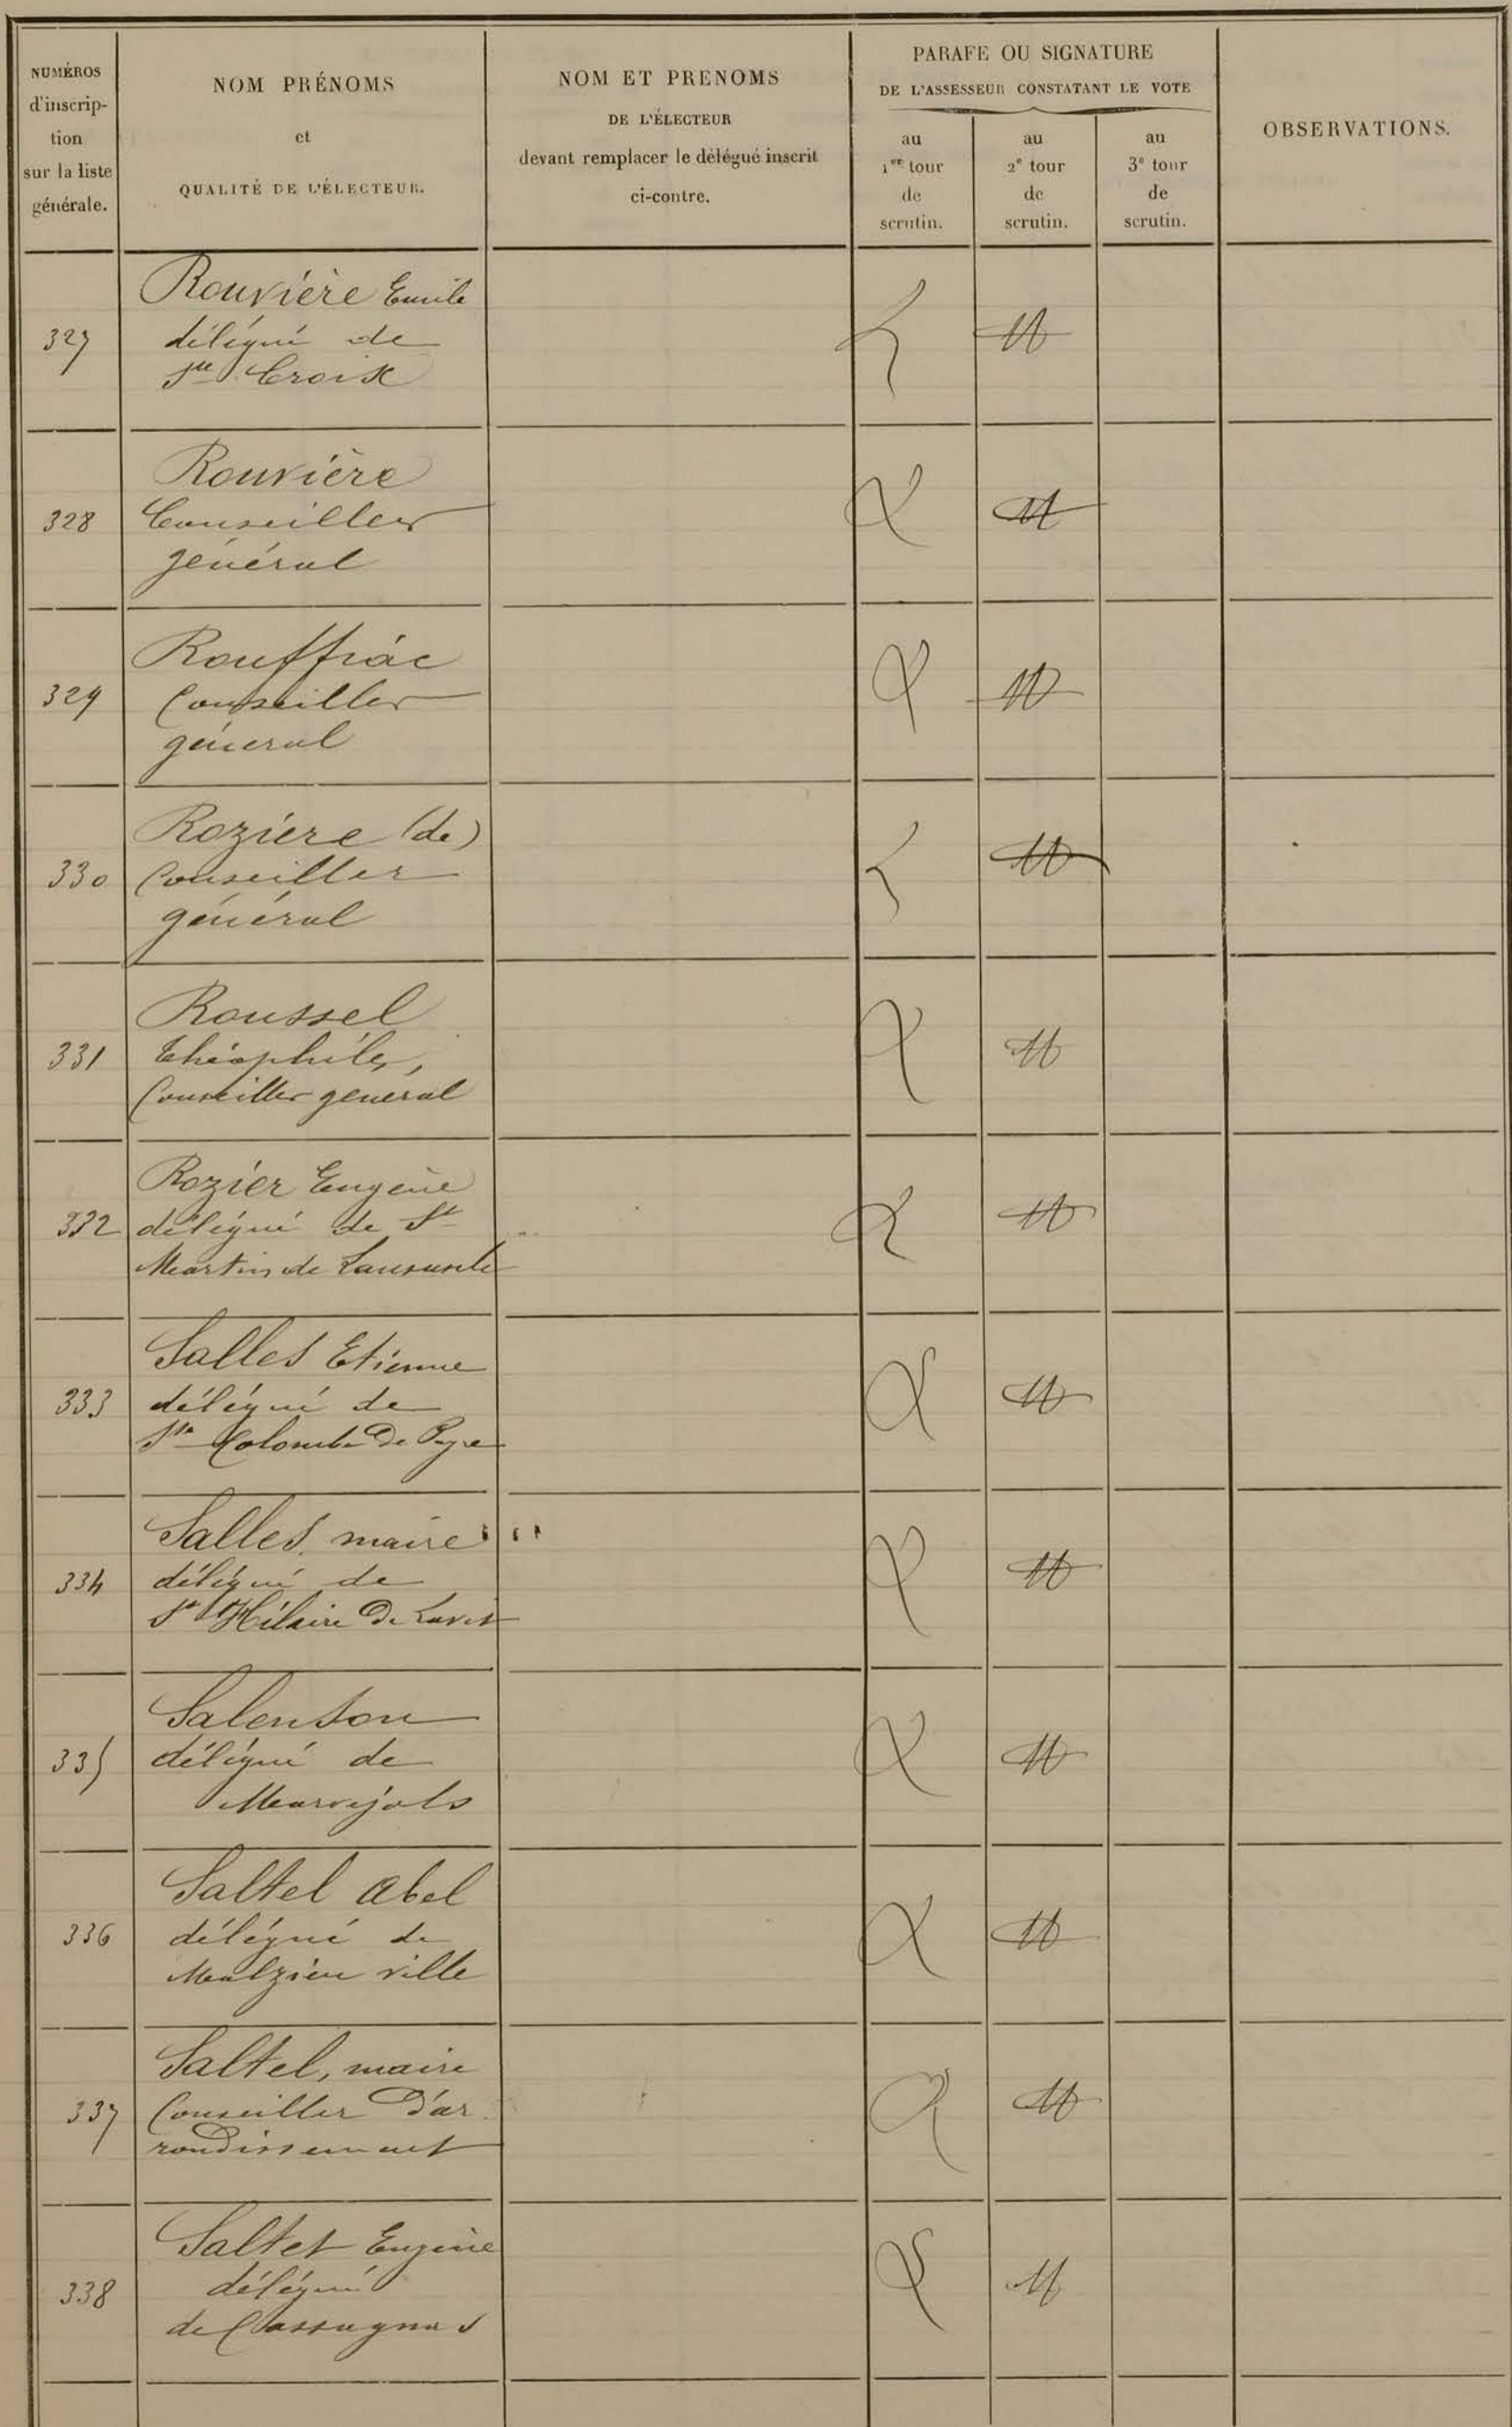 NUMÉROS
d'inscrip-
tion
sur la liste
générale.
NOM PRÉNOMS
et
QUALITÉ DE L'ÉLECTEUR.
NOM ET PRENOMS
DE L'ÉLECTEUR
devant remplacer le délégué inscrit
ci-contre.
PARAFE OU SIGNATURE
DE L'ASSESSEUR CONSTATANT LE VOTE
au
1er tour
de
scrutin.
au
2e tour
de
scrutin.
au
3e tour
de
scrutin.
OBSERVATIONS.
Rouvière Emile
327 délégué de
Ste Croix
Rouvière
328 Conseiller
général
Rouffiac
329 Conseiller
général
Rozière (de)
330 Conseiller
général
Roussel
331 Théophile,
Conseiller general
Rozier Eugène
332 délégué de St
Martin de Lansuscle
Salles Etienne
333 délégué de
Ste Colombe De Peyre
Salles, maire
334 délégué de
St Hilaire De Lavit
Salenson
335 délégué de
Marvejols
Saltel Abel
336 délégué de
Malzieu ville
Saltel, maire
337 Conseiller D'ar
rondissement
Saltet Eugène
338 délégué
de Cassagnas